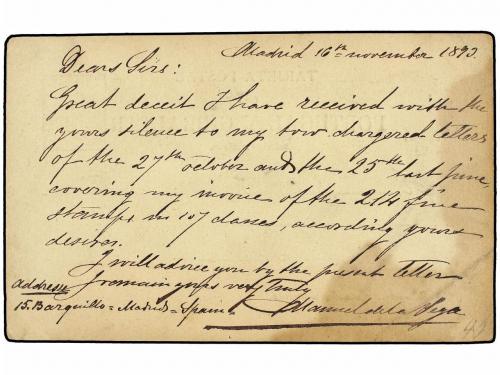 Madrid 16th november 1893.
Dears Sirs:
Great deceit I have received with the
yours silence to my tow chargered letters
of the 27th octobor and the 25th last june,
covering my invoice of the 214 fine
stamps in 107 classes, according yours
desires.
I will advice you by the present letter
address I remain yours very truly
15. Barquillo = Madrid = Spain. Manuel de la Vega